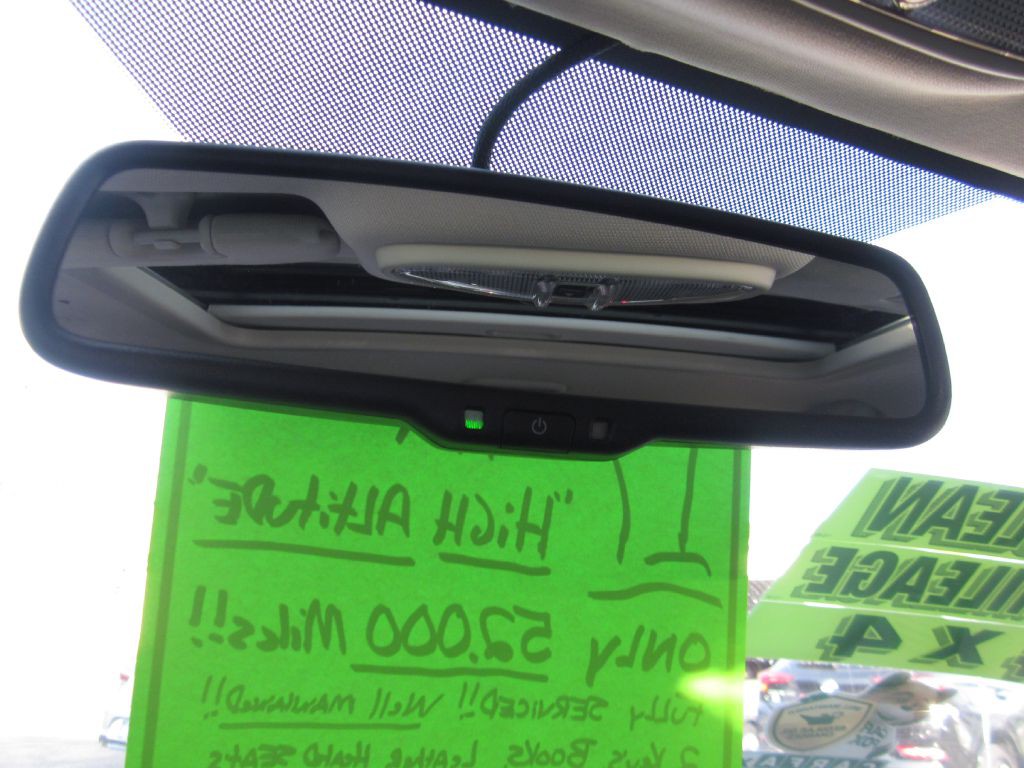 "HiGH AltitudE"
ONLY 52,000 Miles!!
FUlly SERVICED!! Well MAINTAINED!!
2 Keys, Books, Leather Heated SEATS
LEAN
MILEAGE
X 4